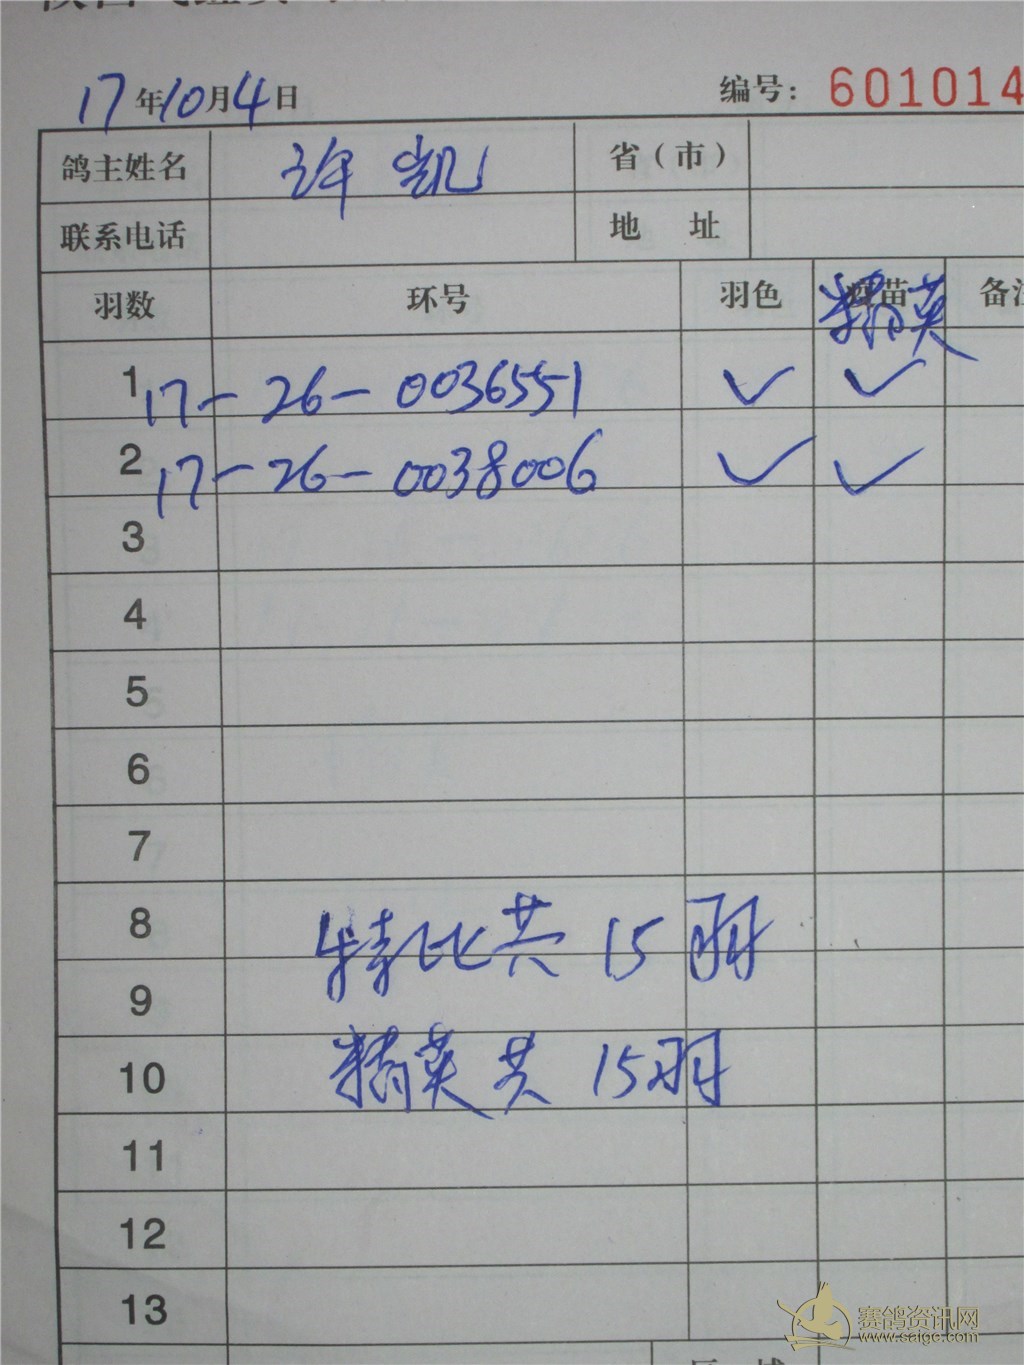 17年10月4日 编号: 601014
鸽主姓名 许凯 省(市)
联系电话 地 址
羽数 环号 羽色 苗 精英 备注
1 17-26-0036551 ✓ ✓
2 17-26-0038006 ✓ ✓
3
4
5
6
7
8 特比共15羽
9
10 精英共15羽
11
12
13
赛鸽资讯网
www.saige.com